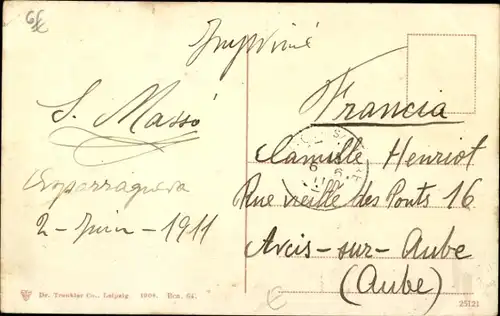 Imprimé
S. Massó
Esparraguera
2-Juin-1911
Francia
Camille Henriot
Rue vieille des Ponts 16
Arcis-sur-Aube
(Aube)
Dr. Trenkler Co., Leipzig. 1908. Bcn. 64.
25121